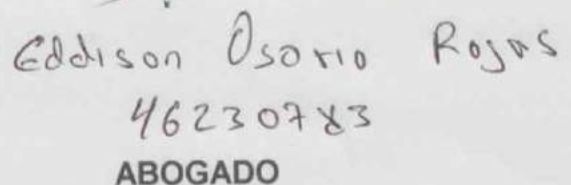 Eddison Osorio Rojas
46230783
ABOGADO